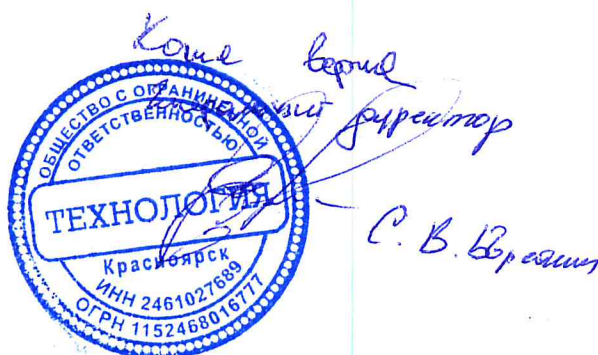 Копия верна
директор
С. В.
ОБЩЕСТВО С ОГРАНИЧЕННОЙ
ОТВЕТСТВЕННОСТЬЮ
ТЕХНОЛОГИЯ
Красноярск
ИНН 2461027689
ОГРН 1152468016777